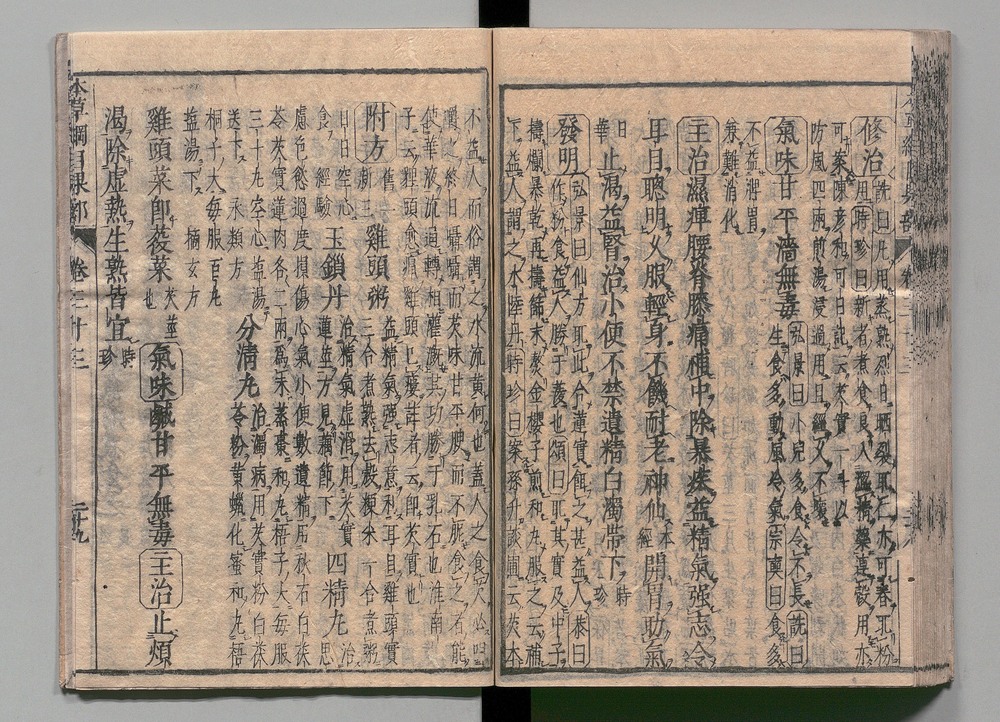 修治詵曰凡用蒸熟烈日晒裂取仁亦可舂取粉
用時珍曰新者煮食良入澀精藥連殼用亦
可案陳彦和可日記云芡實一斗以
防風四兩煎湯浸過用且經久不壞
氣味甘平濇無毒弘景曰小兒多食令不長詵曰
生食多動風冷氣宗奭曰食多
不益脾胃
兼難消化
主治濕痺腰脊膝痛補中除暴疾益精氣强志令
耳目聰明久服輕身不饑耐老神仙本經開胃助氣
日華止渴益腎治小便不禁遺精白濁帶下時珍
發明弘景曰仙方取此合蓮實餌之甚益人恭曰
作粉食益人勝于菱也頌曰取其實及中子
擣爛暴乾再擣篩末熬金櫻子煎和丸服之云補
下益人謂之水陸丹時珍曰案孫升談圃云芡本
不益人而俗謂之水流黄何也蓋人之食芡必咀
嚼之終日囁囁而芡味甘平腴而不膩食之者能
使華液流通轉相灌漑其功勝于乳石也淮南
子云狸頭愈癙雞頭已瘻註者云即芡實也
附方舊一新三雞頭粥益精氣强志意利耳目雞頭實
三合煮熟去殼粳米一合煮粥
日日空心食經驗玉鎖丹治精氣虛滑用芡實
蓮蕊方見藕節下四精丸治思
慮色慾過度損傷心氣小便數遺精用秋石白茯
苓芡實蓮肉各二兩爲末蒸棗和丸梧子大每服
三十丸空心鹽湯
送下永類方分清丸治濁病用芡實粉白茯
苓粉黄蠟化蜜和丸梧
桐子大每服百丸
鹽湯下摘玄方
雞頭菜即䓈菜芡莖也氣味鹹甘平無毒主治止煩
渴除虛熱生熟皆宜時珍
本草綱目果部 卷三十三 二十九